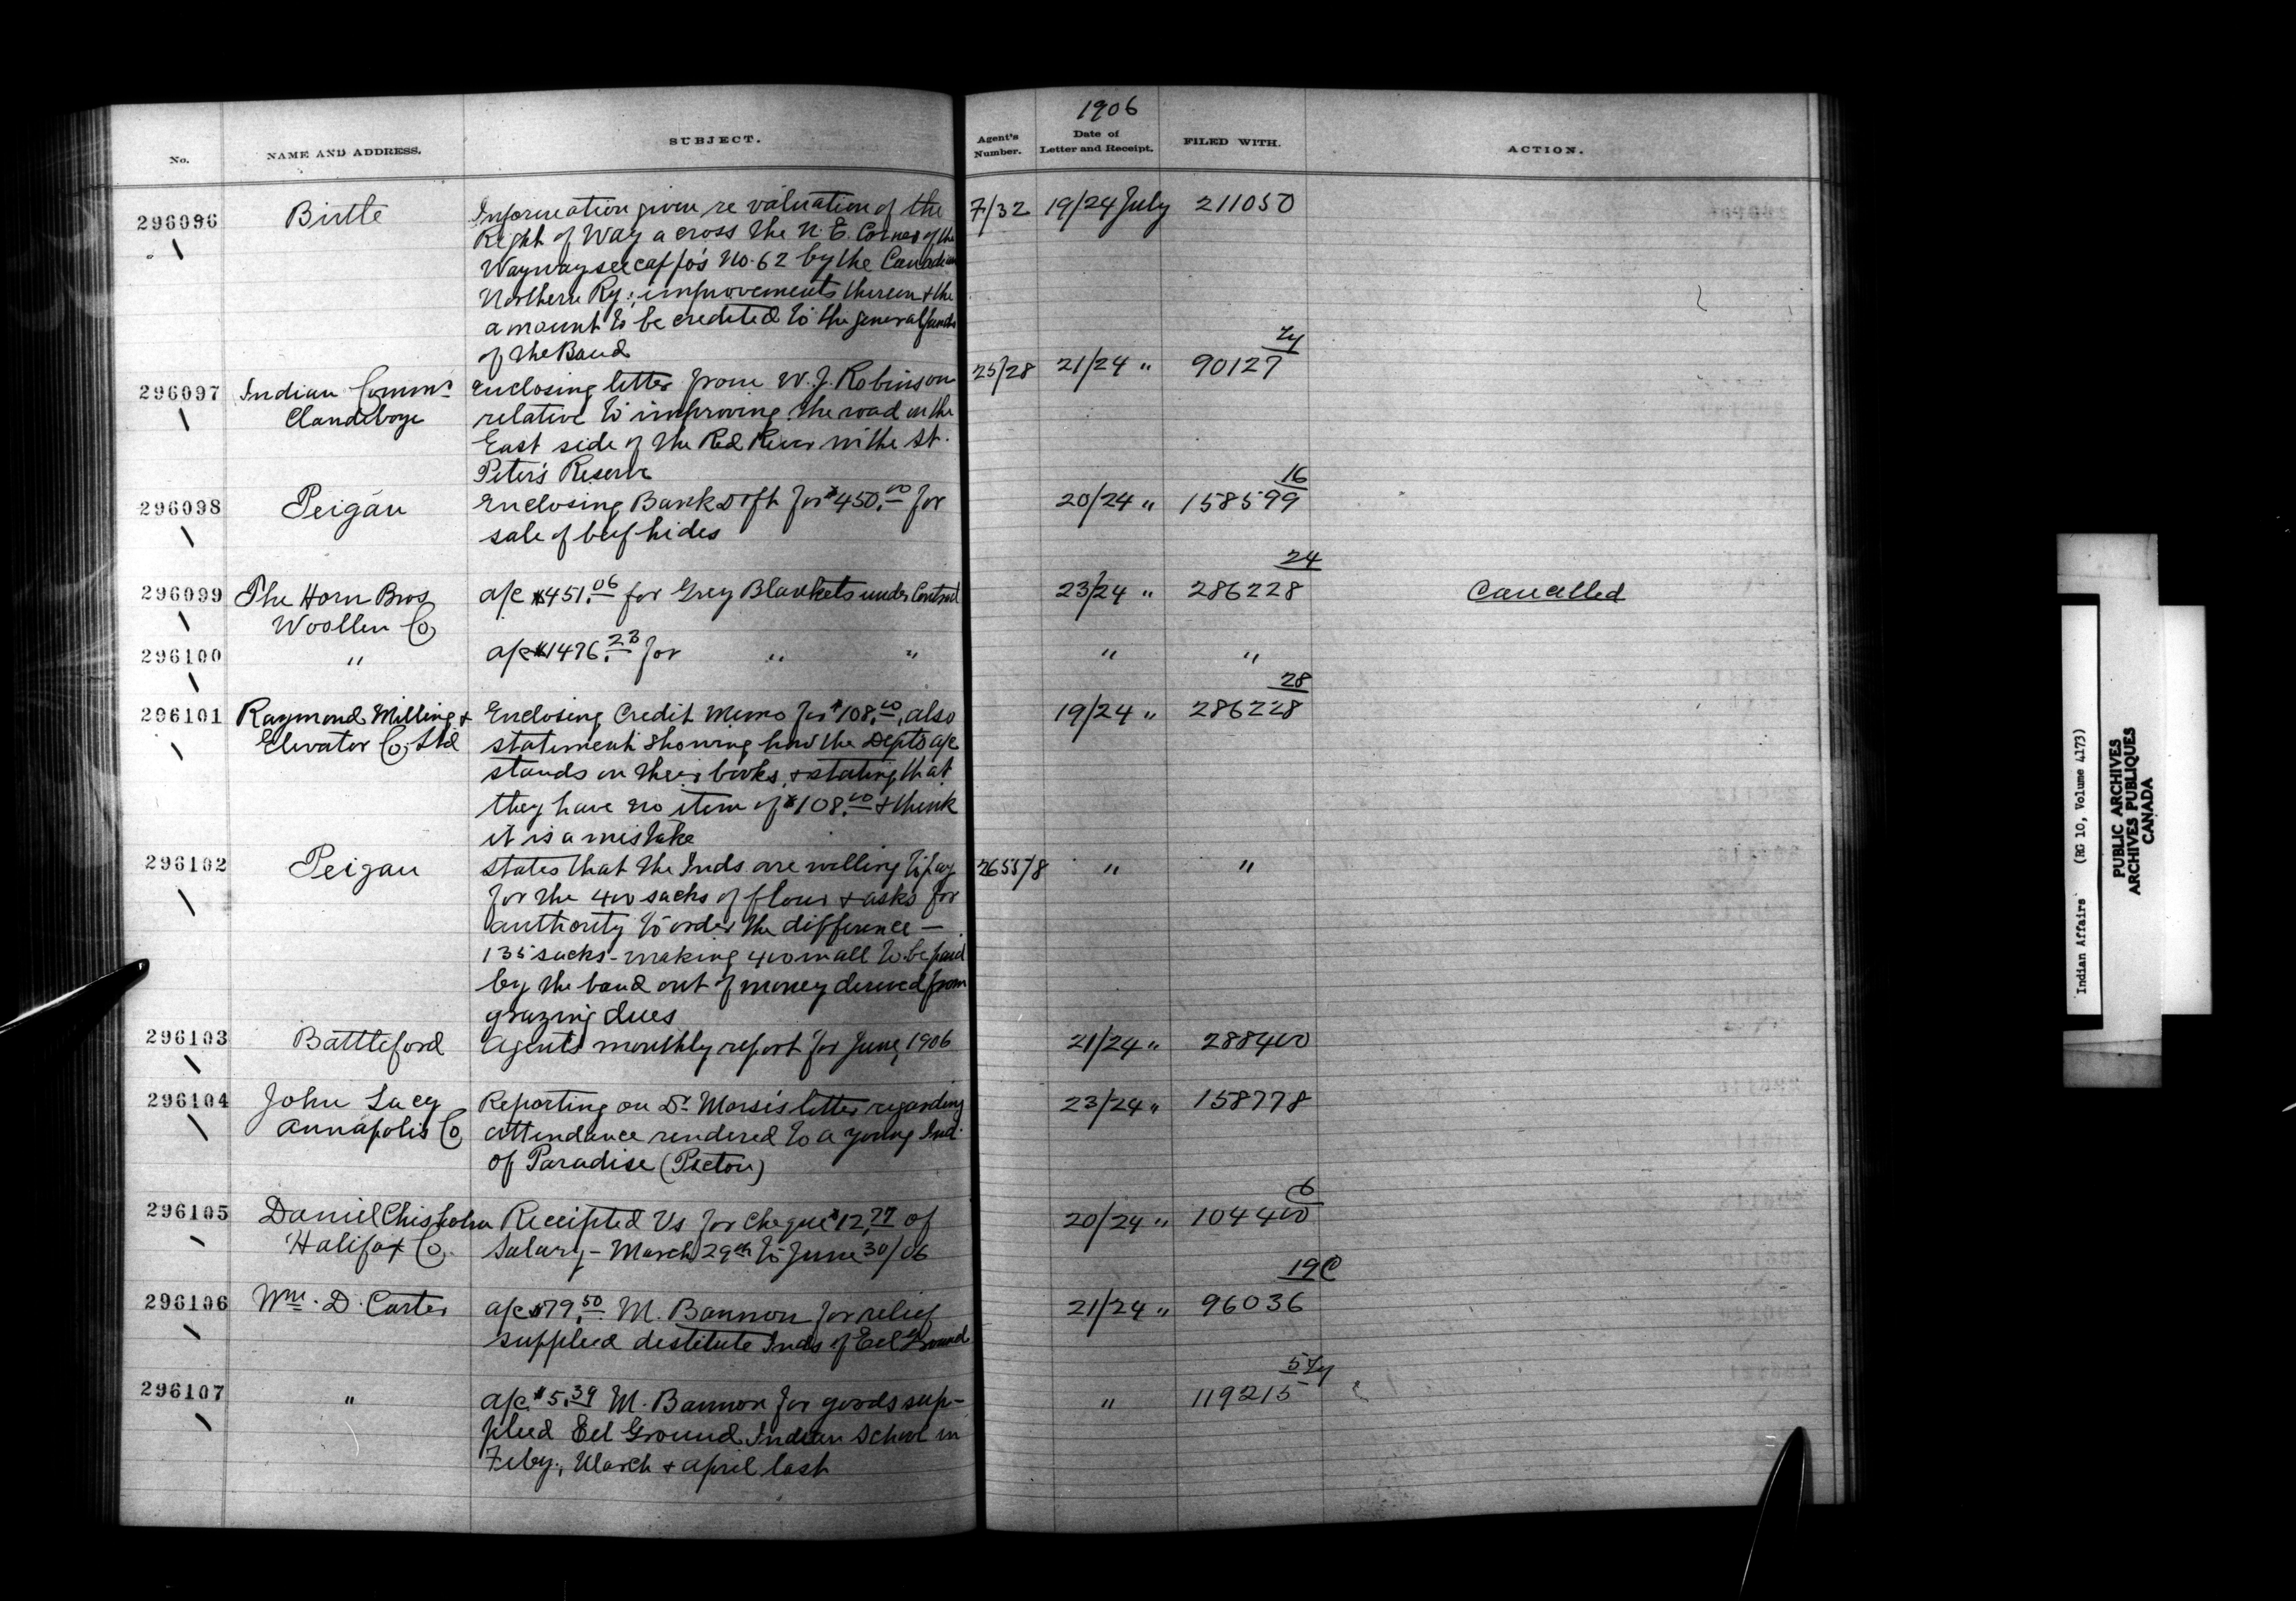 1906
No.	NAME AND ADDRESS.	SUBJECT.	Agent's Number.	Date of Letter and Receipt.	FILED WITH.	ACTION.
296096	Birtle	Information given re valuation of the	7/32	19/24 July	211050
Right of Way across the N. E. Corner of the
Waywayseecappo's No. 62 by the Canadian
Northern Ry.; improvements thereon & the
amount to be credited to the general funds
of the Band
296097	Indian Commr	Enclosing letter from W. J. Robinson	25/28	21/24 "	90127
Clandeboye	relative to improving the road on the
East side of the Red River in the St.
Peter's Reserve
16
296098	Peigan	Enclosing Bank Dft for $450.00 for	20/24 "	158599
sale of beef hides
24
296099	The Horn Bros	a/c $451.06 for Grey Blankets under Contract	23/24 "	286228	Cancelled
Woollen Co
296100	"	a/c $1476.23 for " "	"	"
28
296101	Raymond Milling &	Enclosing Credit Memo for $108.00, also	19/24 "	286228
Elevator Co, Ltd	statement showing how the Depts a/c
stands on their books, & stating that
they have no item of $108.00 & think
it is a mistake
296102	Peigan	States that the Inds are willing to pay	2655/8	"	"
for the 400 sacks of flour & asks for
authority to order the difference —
135 sacks - making 400 in all to be paid
by the band out of money derived from
grazing dues
296103	Battleford	Agent's monthly report for June, 1906	21/24 "	288400
296104	John Lacy	Reporting on Dr Morse's letter regarding	23/24 "	158778
Annapolis Co	attendance rendered to a young Ind.
of Paradise (Picton)
6
296105	Daniel Chisholm	Receipted Vs for cheque $12.77 of	20/24 "	104400
Halifax Co.	Salary - March 29th to June 30/06
19 C
296106	Wm. D. Carter	a/c $79.50 M. Bannon for relief	21/24 "	96036
supplied destitute Inds of Eel Ground
296107	"	a/c $5.39 M. Bannon for goods sup-	"	119215
plied Eel Ground Indian School in
Feby., March & April last
Indian Affairs (RG 10, Volume 4173)
PUBLIC ARCHIVES
ARCHIVES PUBLIQUES
CANADA